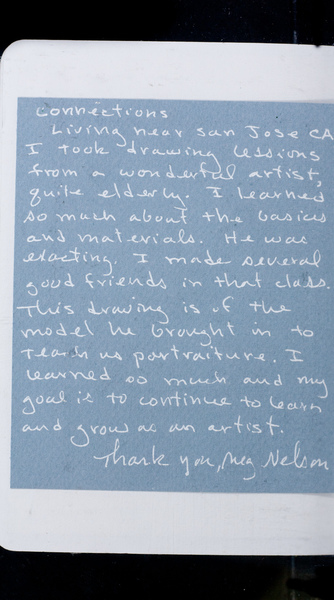 Connections
Living near San Jose CA
I took drawing lessions
from a wonderful artist,
quite elderly. I learned
so much about the basics
and materials. He was
exacting. I made several
good friends in that class.
This drawing is of the
model he brought in to
teach us portraiture. I
learned so much and my
goal is to continue to learn
and grow as an artist.
Thank you, Meg Nelson